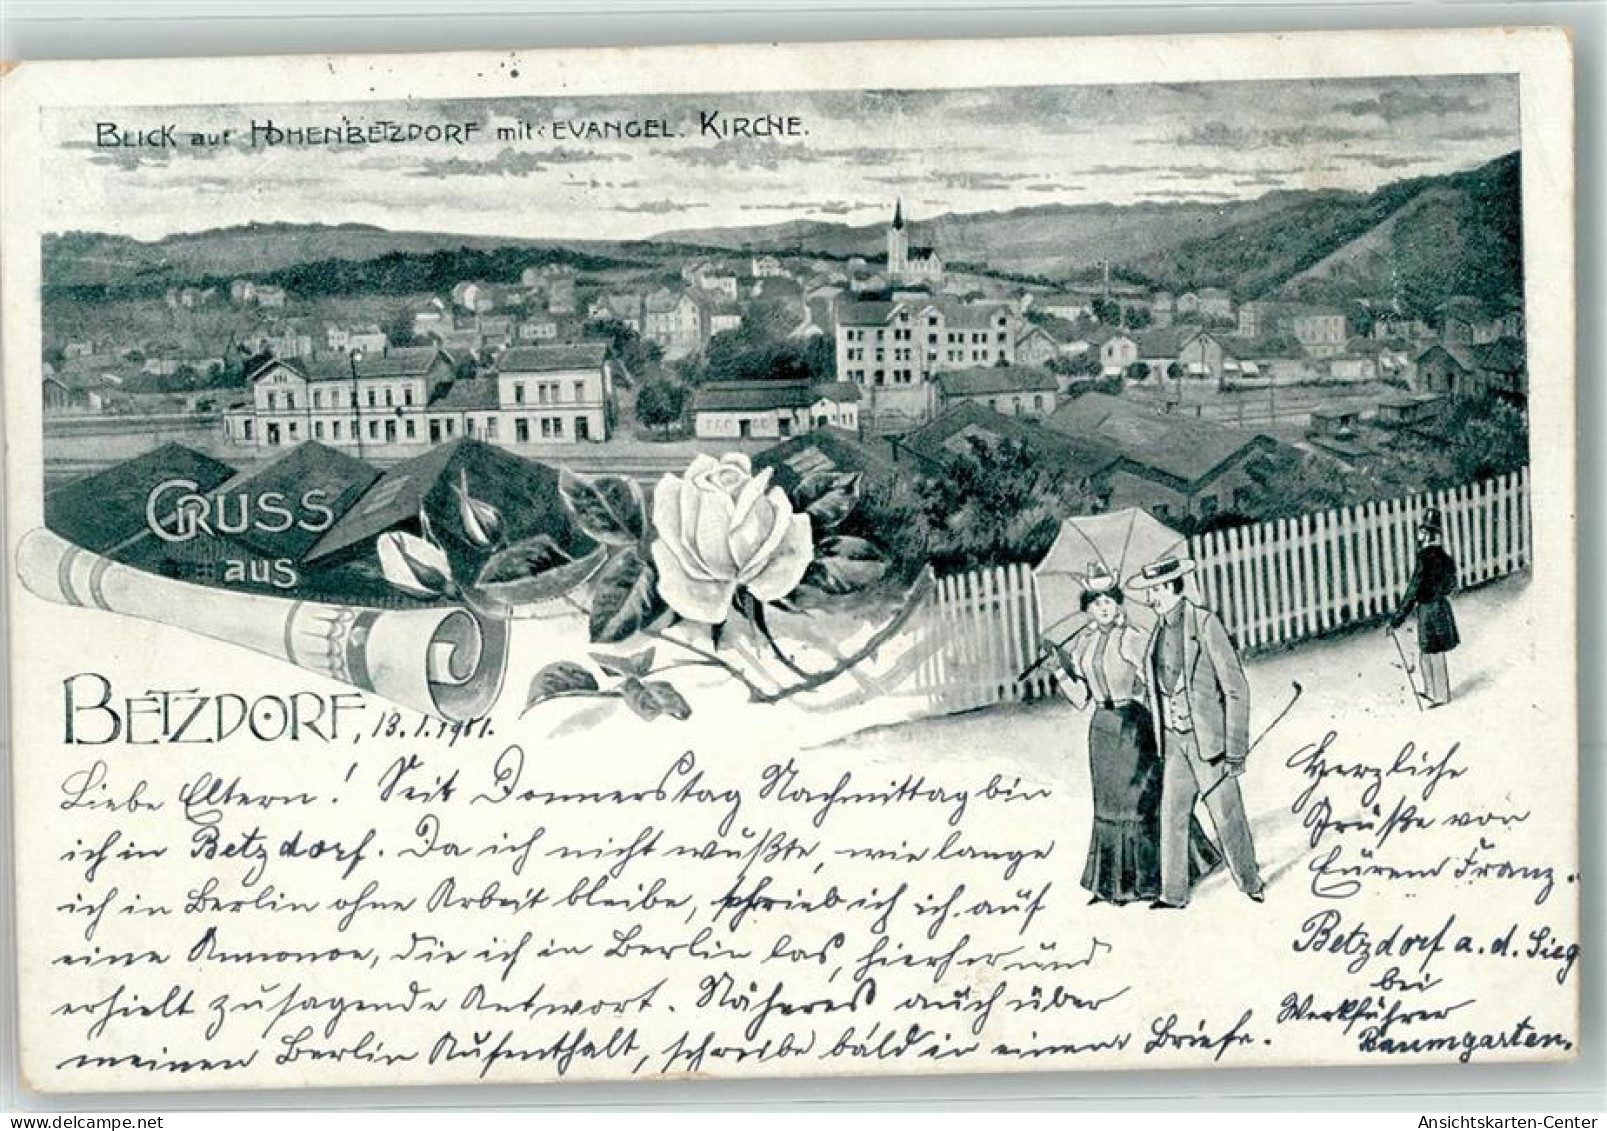 Blick auf Hohenbetzdorf mit Evangel. Kirche.
Gruss
aus
Betzdorf, 13.1.1901.
Liebe Eltern! Seit Donnerstag Nachmittag bin
ich in Betzdorf. Da ich nicht wußte, wie lange
ich in Berlin ohne Arbeit bleibe, schrieb ich ich auf
eine Annonce, die ich in Berlin las, hierher und
erhielt zusagende Antwort. Näheres auch über
meinen Berlin Aufenthalt, schreibe bald in einem Briefe.
Herzliche
Grüße von
Eurem Franz.
Betzdorf a. d. Sieg
bei
Werkführer
Baumgarten.
Ansichtskarten-Center